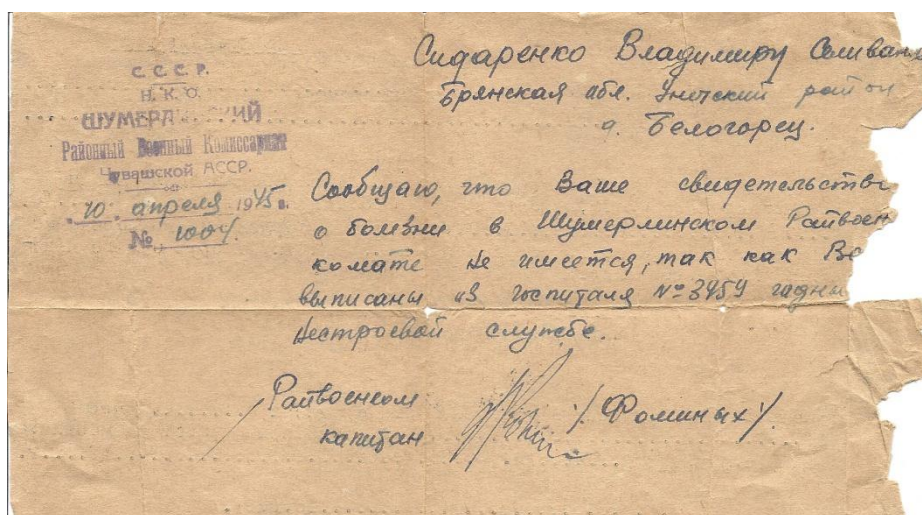 С.С.С.Р.
Н.К.О.
Районный Военный Комиссариат
Чувашской АССР.
"10" апреля 1945 г.
№ 1004.
Сидаренко Владимиру
Брянская обл. Унечский район
д. Белогорец.
Сообщаю, что Ваше свидетельство
о болезни в Шумерлинском Райвоен
комате не имеется, так как Вы
выписаны из госпиталя №3459 годны
нестроевой службе.
Райвоенком
капитан /Фоминых/.